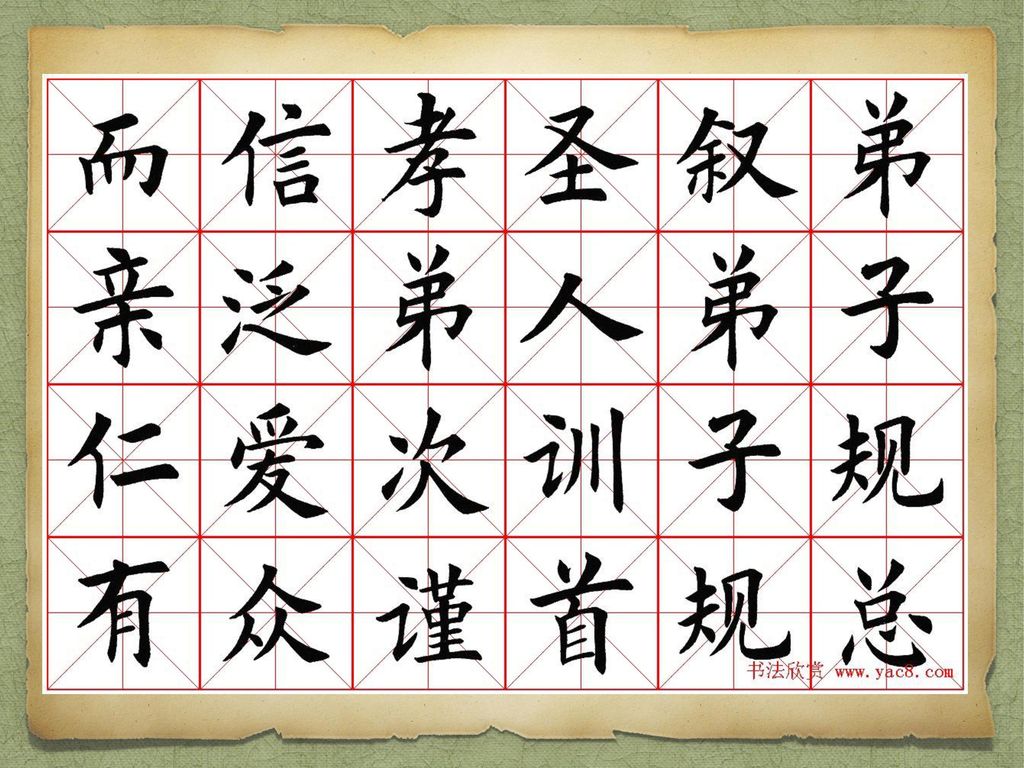 弟子规总
叙弟子规
圣人训首
孝弟次谨
信泛爱众
而亲仁有
书法欣赏 www.yac8.com